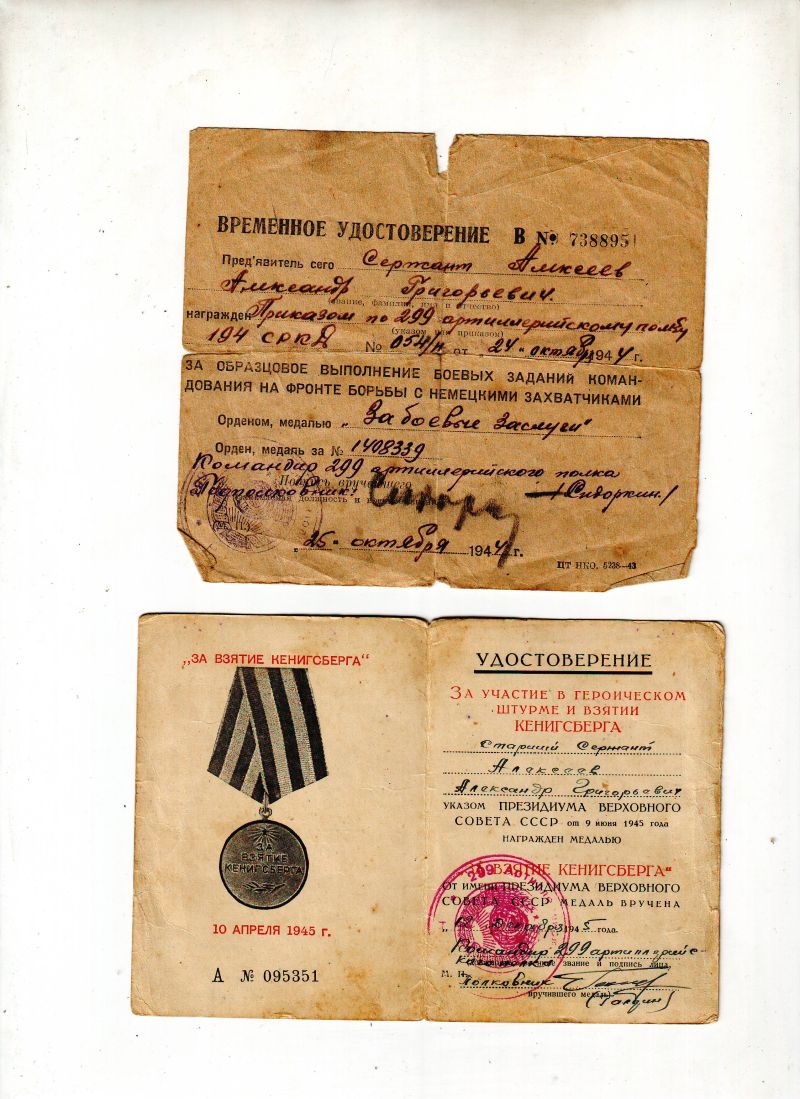 ВРЕМЕННОЕ УДОСТОВЕРЕНИЕ В № 738895
Пред'явитель сего Сержант Алексеев
Александр Григорьевич.
(звание, фамилия, имя и отчество)
награжден Приказом по 299 артиллерийскому полку
(указом или приказом)
194 СРКД № 054/н от „24“ октября 1944 г.
ЗА ОБРАЗЦОВОЕ ВЫПОЛНЕНИЕ БОЕВЫХ ЗАДАНИЙ КОМАН-
ДОВАНИЯ НА ФРОНТЕ БОРЬБЫ С НЕМЕЦКИМИ ЗАХВАТЧИКАМИ
Орденом, медалью „За боевые заслуги“
Орден, медаль за № 1408339
Командир 299 артиллерийского полка
Подпись вручившего
Подполковник: /Сидоркин/
должность и
„25“ октября 1944 г.
ЦТ НКО. 5238—43
„ЗА ВЗЯТИЕ КЕНИГСБЕРГА“
ЗА
ВЗЯТИЕ
КЕНИГСБЕРГА
10 АПРЕЛЯ 1945 г.
А № 095351
УДОСТОВЕРЕНИЕ
ЗА УЧАСТИЕ В ГЕРОИЧЕСКОМ
ШТУРМЕ И ВЗЯТИИ
КЕНИГСБЕРГА
Старший Сержант
Алексеев
Александр Григорьевич
УКАЗОМ ПРЕЗИДИУМА ВЕРХОВНОГО
СОВЕТА СССР от 9 июня 1945 года
НАГРАЖДЕН МЕДАЛЬЮ
„ЗА ВЗЯТИЕ КЕНИГСБЕРГА“
От имени ПРЕЗИДИУМА ВЕРХОВНОГО
СОВЕТА СССР МЕДАЛЬ ВРУЧЕНА
декабря 1945 года.
Командир 299 артиллерийс-
кого полка звание и подпись лица,
М. П. Полковник
вручившего медаль
299